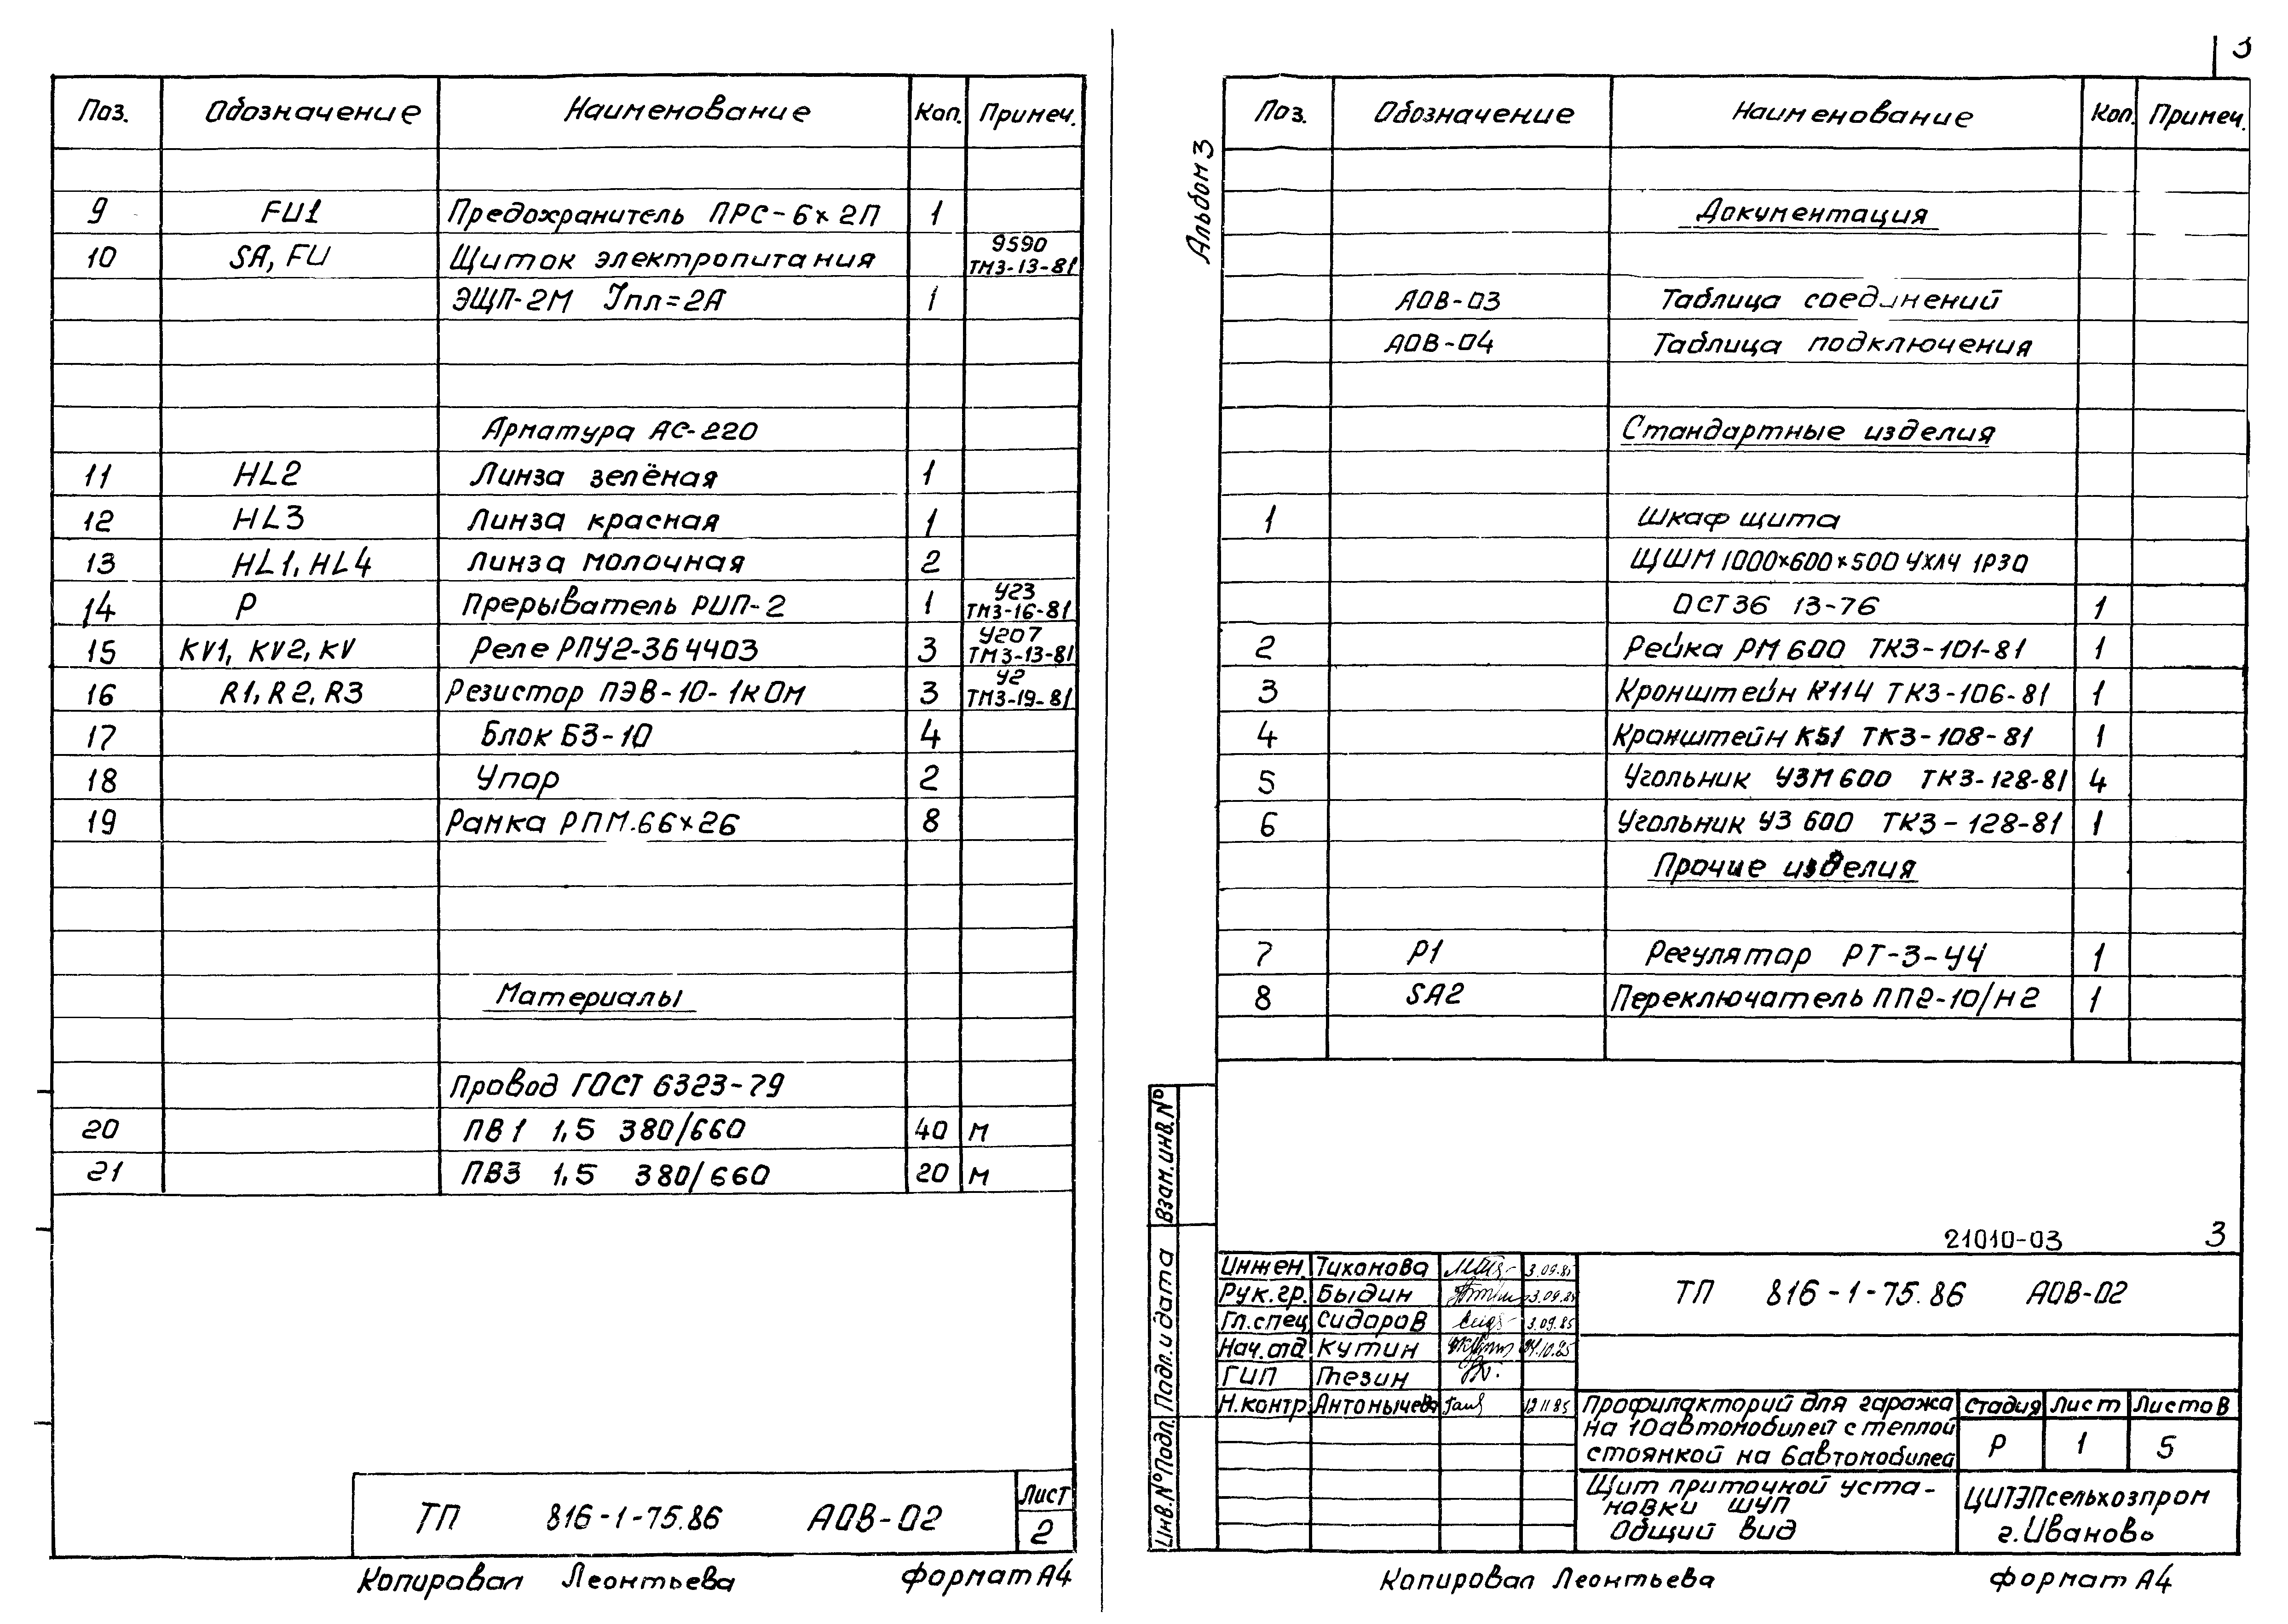 Поз. Обозначение Наименование Кол. Примеч.
9 FU1 Предохранитель ПРС-6х2П 1
10 SA, FU Щиток электропитания 9590 ТМ3-13-81
ЭЩП-2М Iпл=2А 1
Арматура АС-220
11 HL2 Линза зелёная 1
12 HL3 Линза красная 1
13 HL1, HL4 Линза молочная 2
14 Р Прерыватель РИП-2 1 У23 ТМ3-16-81
15 KV1, KV2, KV Реле РПУ2-364403 3 У207 ТМ3-13-81
16 R1, R2, R3 Резистор ПЭВ-10-1кОм 3 У2 ТМ3-19-81
17 Блок БЗ-10 4
18 Упор 2
19 Рамка РПМ.66х26 8
Материалы
Провод ГОСТ 6323-79
20 ПВ1 1,5 380/660 40 м
21 ПВ3 1,5 380/660 20 м
ТП 816-1-75.86 АОВ-02
Лист
2
Копировал Леонтьева формат А4
3
Альбом 3
Поз. Обозначение Наименование Кол. Примеч.
Документация
АОВ-03 Таблица соединений
АОВ-04 Таблица подключения
Стандартные изделия
1 Шкаф щита
ЩШМ 1000х600х500 УХЛ4 1Р30
ОСТ36 13-76 1
2 Рейка РМ600 ТК3-101-81 1
3 Кронштейн К114 ТК3-106-81 1
4 Кранштейн К51 ТК3-108-81 1
5 Угольник УЗМ600 ТК3-128-81 4
6 Угольник УЗ 600 ТК3-128-81 1
Прочие изделия
7 Р1 Регулятор РТ-3-У4 1
8 SA2 Переключатель ПП2-10/Н2 1
Взам.инв.№
Подп. и дата
Инв.№ подл.
21010-03 3
Инжен. Тихонова 3.09.85
Рук.гр. Быдин 3.09.85
Гл.спец Сидоров 3.09.85
Нач.отд Кутин 10.85
ГИП Тезин
Н.контр. Антонычева 12 11 85
ТП 816-1-75.86 АОВ-02
Профилакторий для гаража
на 10 автомобилей с теплой
стоянкой на 6 автомобилей
Стадия Лист Листов
Р 1 5
Щит приточной уста-
новки ШУП
Общий вид
ЦИТЭПсельхозпром
г.Иваново
Копировал Леонтьева формат А4